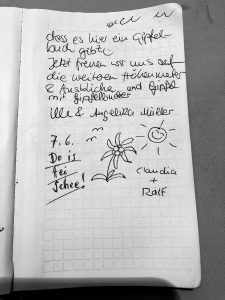 dass es hier ein Gipfel-
buch gibt.
Jetzt freuen wir uns auf
die weiteren Höhenmeter
& Ausblicke und Gipfel
mit Gipfelbücher
Ulli & Angelika Müller
7.6.
Do is
fei
Schee!
Claudia
+
Ralf